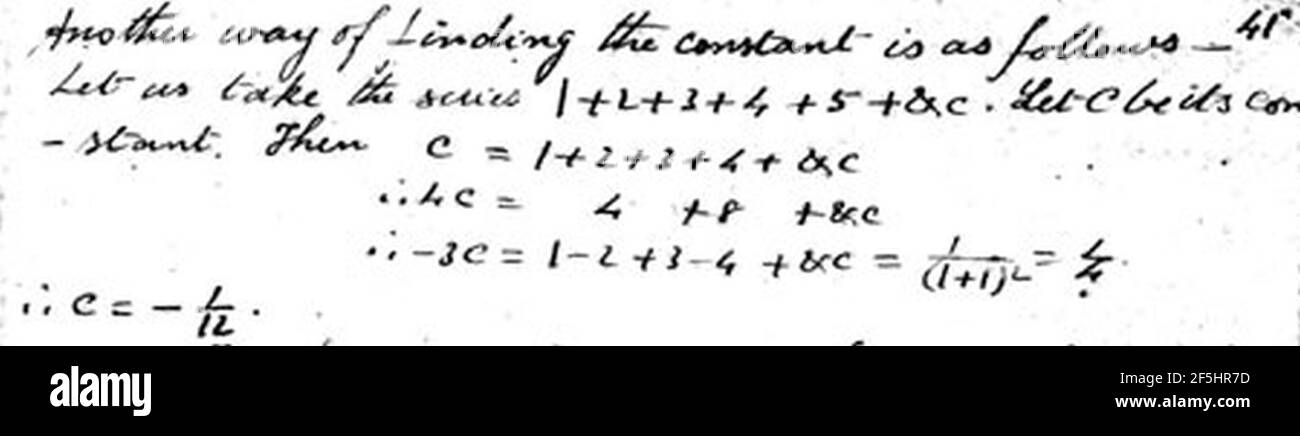 Another way of finding the constant is as follows — 41
Let us take the series 1+2+3+4+5+&c. Let C be its con
- stant. Then C = 1+2+3+4+&c
∴ 4C = 4 +8 +&c
∴ -3C = 1-2+3-4+&c = 1/(1+1)² = 1/4.
∴ C = - 1/12.
alamy
Image ID: 2F5HR7D
www.alamy.com